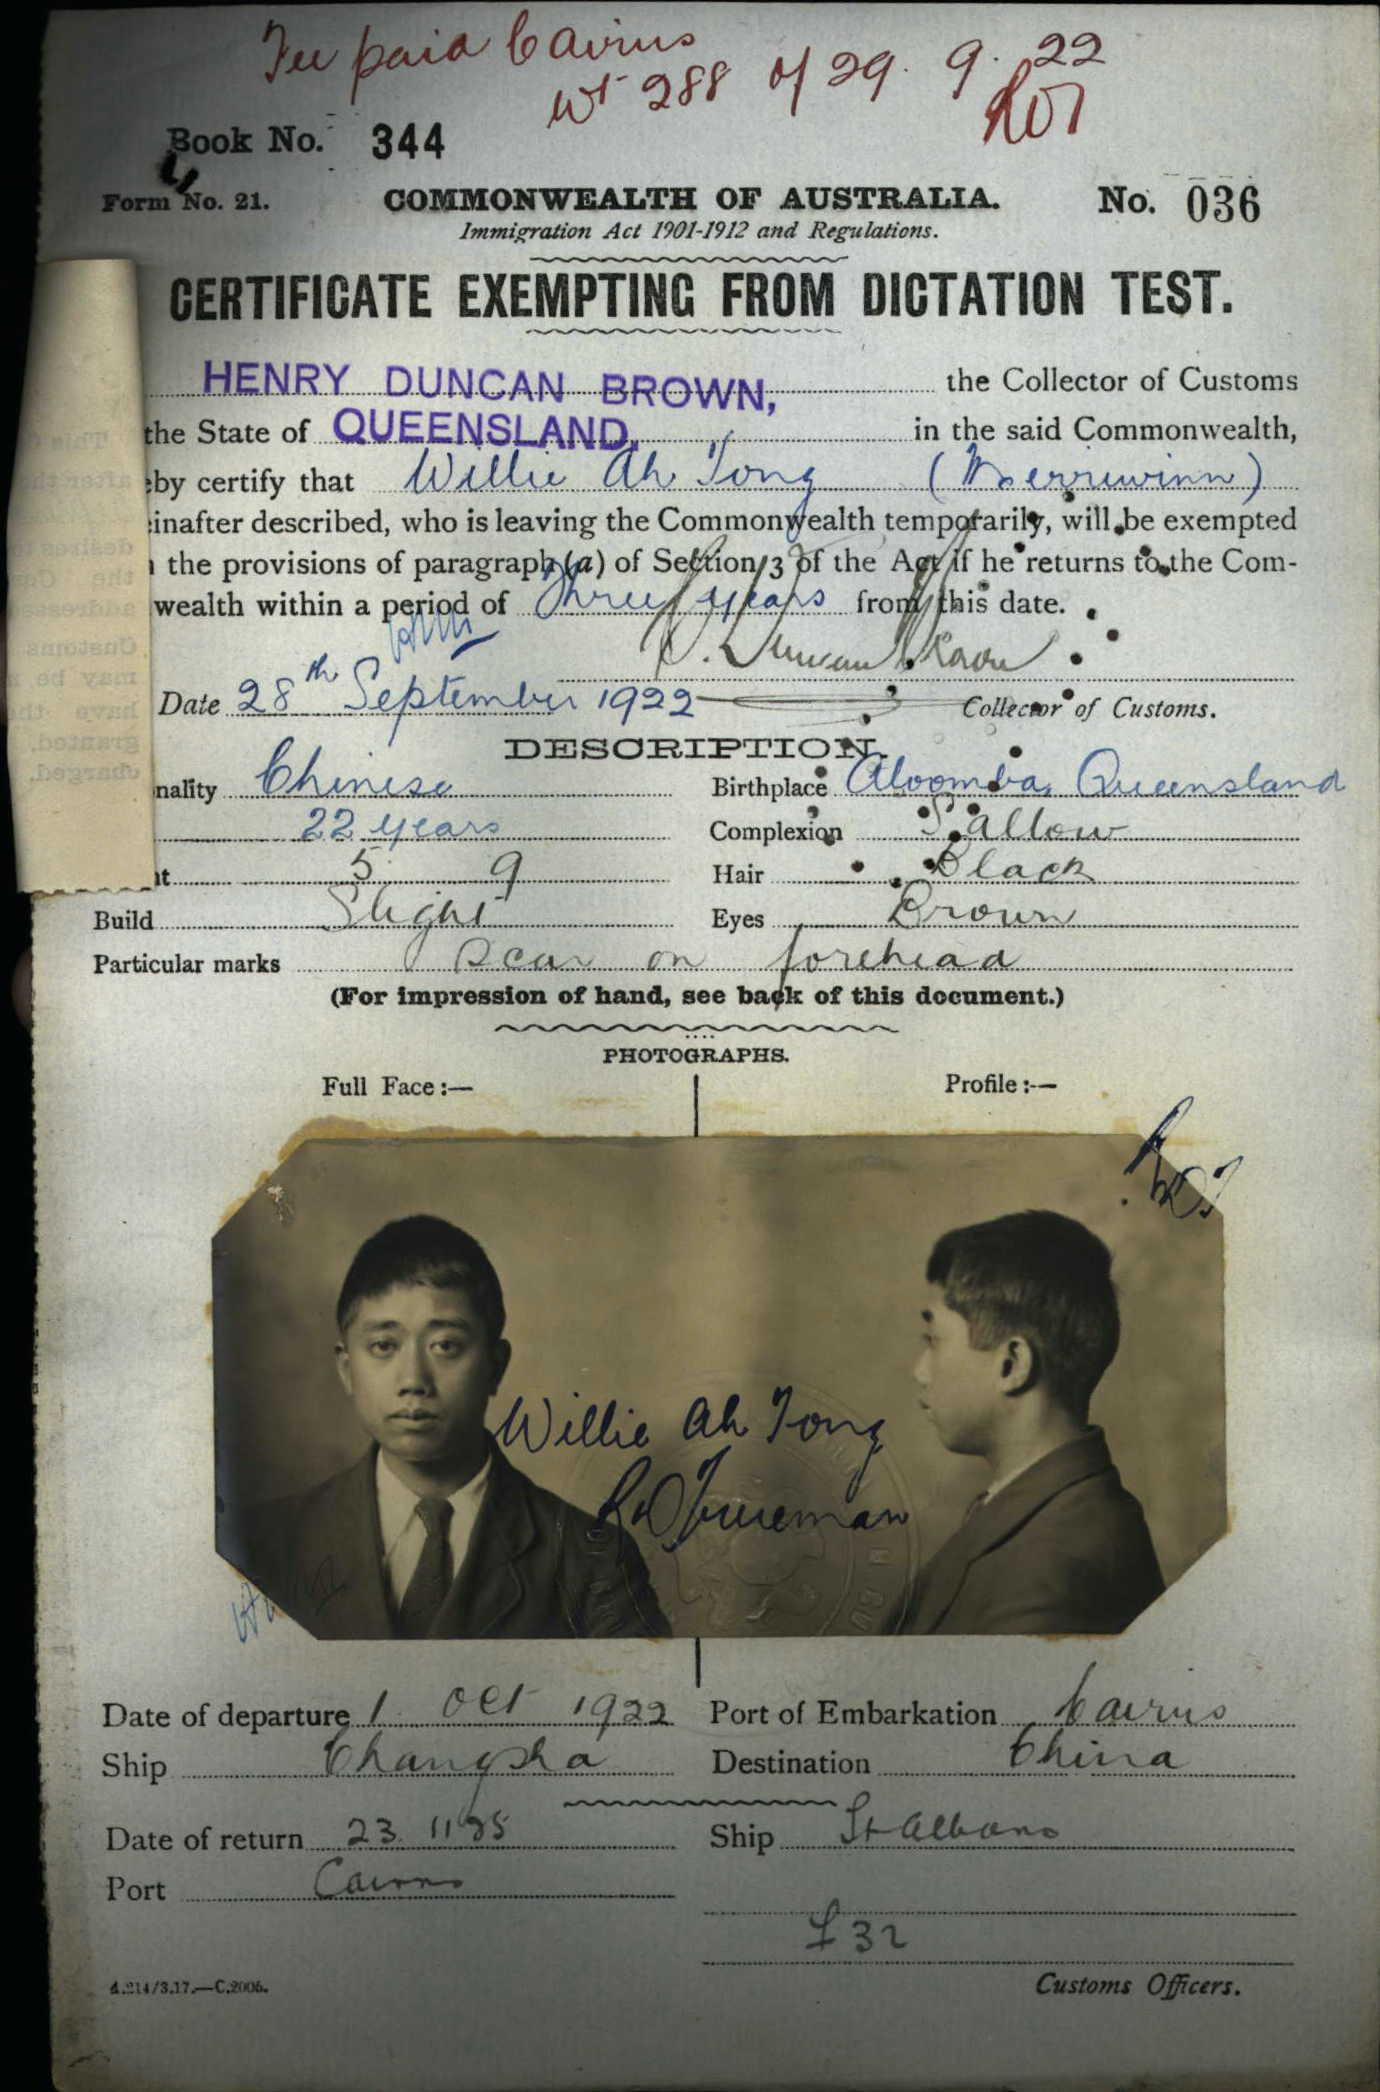 Fee paid Cairns
wt 288 of 29. 9. 22
Book No. 344
Form No. 21. COMMONWEALTH OF AUSTRALIA. No. 036
Immigration Act 1901-1912 and Regulations.
CERTIFICATE EXEMPTING FROM DICTATION TEST.
HENRY DUNCAN BROWN, the Collector of Customs
the State of QUEENSLAND, in the said Commonwealth,
eby certify that Willie Ah Tong (Merriwinn)
einafter described, who is leaving the Commonwealth temporarily, will be exempted
the provisions of paragraph (a) of Section 3 of the Act if he returns to the Com-
wealth within a period of Three years from this date.
H. Duncan Brown
Date 28th September 1922 Collector of Customs.
DESCRIPTION.
nality Chinese Birthplace Aloomba, Queensland
22 years Complexion Sallow
t 5 9 Hair Black
Build Slight Eyes Brown
Particular marks Scar on forehead
(For impression of hand, see back of this document.)
PHOTOGRAPHS.
Full Face:— Profile:—
Willie Ah Tong
Date of departure 1 Oct 1922 Port of Embarkation Cairns
Ship Changsha Destination China
Date of return 23 11 25 Ship St Albans
Port Cairns
£32
Customs Officers.